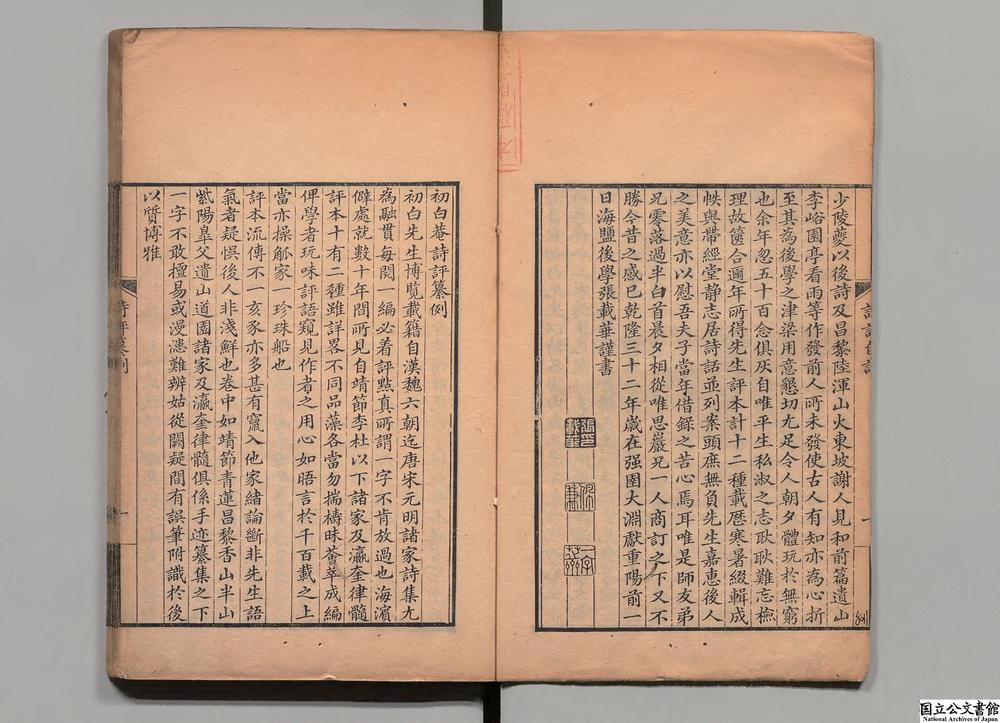 少陵夔以後詩及昌黎陸渾山火東坡謝人見和前篇遺山
李峪園亭看雨等作發前人所未發使古人有知亦為心折
至其為後學之津梁用意懇切尤足令人朝夕體玩於無窮
也余年忽五十百念俱灰自唯平生私淑之志耿耿難忘檢
理故篋合邇年所得先生評本計十二種載歷寒暑綴輯成
帙與帶經堂靜志居詩話並列案頭庶無負先生嘉惠後人
之美意亦以慰吾夫子當年借錄之苦心焉耳唯是師友弟
兄零落過半白首晨夕相從唯思巖兄一人商訂之下又不
勝今昔之感已乾隆三十二年歲在强圉大淵獻重陽前一
日海鹽後學張載華謹書
初白菴詩評纂例
初白先生博覽載籍自漢魏六朝迄唐宋元明諸家詩集尤
為融貫每閱一編必着評點真所謂一字不肯放過也海濱
僻處就數十年間所見自靖節李杜以下諸家及瀛奎律髓
評本十有二種雖詳畧不同品藻各當勿揣檮昧薈萃成編
俾學者玩味評語窺見作者之用心如晤言於千百載之上
當亦操觚家一珍珠船也
評本流傳不一亥豕亦多甚有竄入他家緒論斷非先生語
氣者疑悞後人非淺鮮也卷中如靖節青蓮昌黎香山半山
紫陽臯父遺山道園諸家及瀛奎律髓俱係手迹纂集之下
一字不敢擅易或漫漶難辨姑從闕疑間有誤筆附識於後
以質博雅
国立公文書館
National Archives of Japan